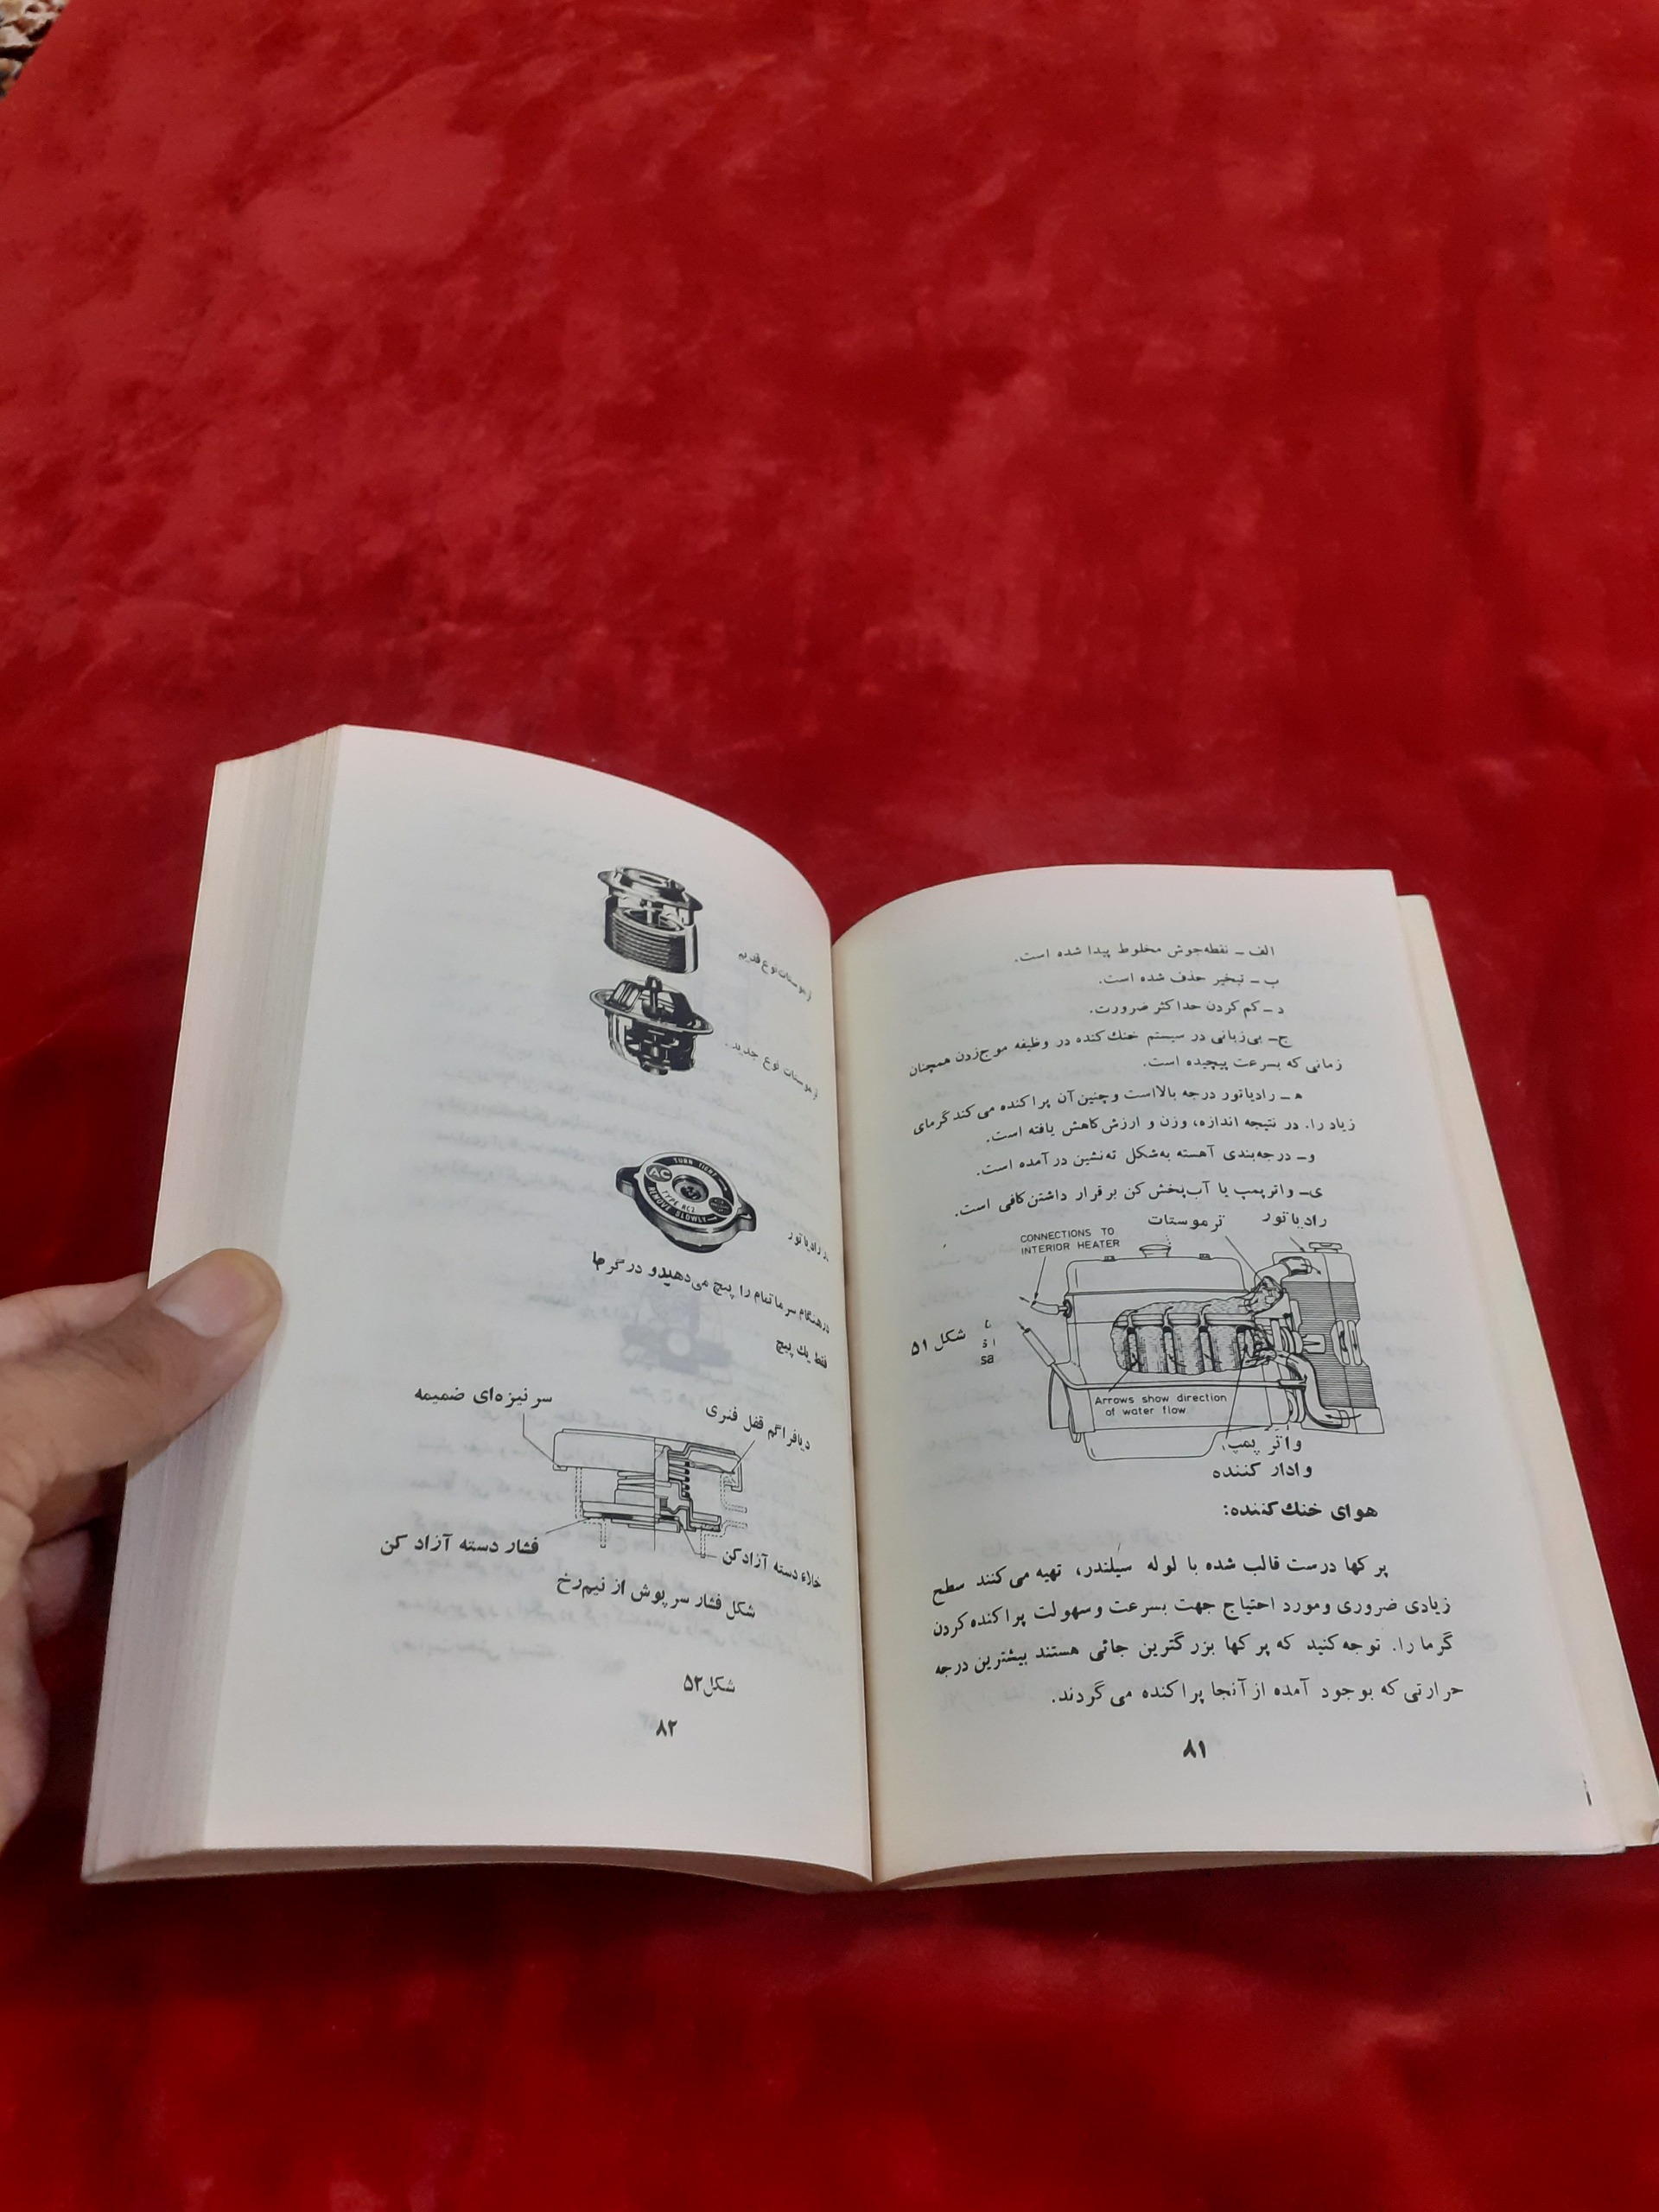 الف ـ نقطه‌جوش مخلوط پیدا شده است.
ب ـ تبخیر حذف شده است.
د ـ کم کردن حداکثر ضرورت.
ج ـ بی‌زبانی در سیستم خنك‌کننده در وظیفه موج‌زدن همچنان
زمانی که بسرعت پیچیده است.
ه ـ رادیاتور درجه بالااست وچنین آن پراکنده می‌کند گرمای
زیاد را. در نتیجه اندازه، وزن و ارزش کاهش یافته است.
و ـ درجه‌بندی آهسته به‌شکل ته‌نشین درآمده است.
ی ـ واترپمپ یا آب‌پخش‌کن برقرار داشتن کافی است.
رادیاتور
ترموستات
CONNECTIONS TO
INTERIOR HEATER
شکل ۵۱
sa
Arrows show direction
of water flow
واتر پمپ
وادار کننده
هوای خنك‌کننده:
پرکها درست قالب شده با لوله سیلندر، تهیه می‌کنند سطح
زیادی ضروری ومورد احتیاج جهت بسرعت وسهولت پراکنده کردن
گرما را. توجه کنید که پرکها بزرگترین جائی هستند بیشترین درجه
حرارتی که بوجود آمده از آنجا پراکنده می‌گردند.
۸۱
ترموستات نوع قدیم
ترموستات نوع جدید.
AC
TURN TIGHT
TYPE RC1
REMOVE SLOWLY
در رادیاتور
درهنگام سرما تمام را پیچ می‌دهید و در گرما
فقط یك پیچ
سرنیزه‌ای ضمیمه
دیافراگم قفل فنری
فشار دسته آزاد کن
خلاء دسته آزادکن
شکل فشار سرپوش از نیم‌رخ
شکل ۵۲
۸۲